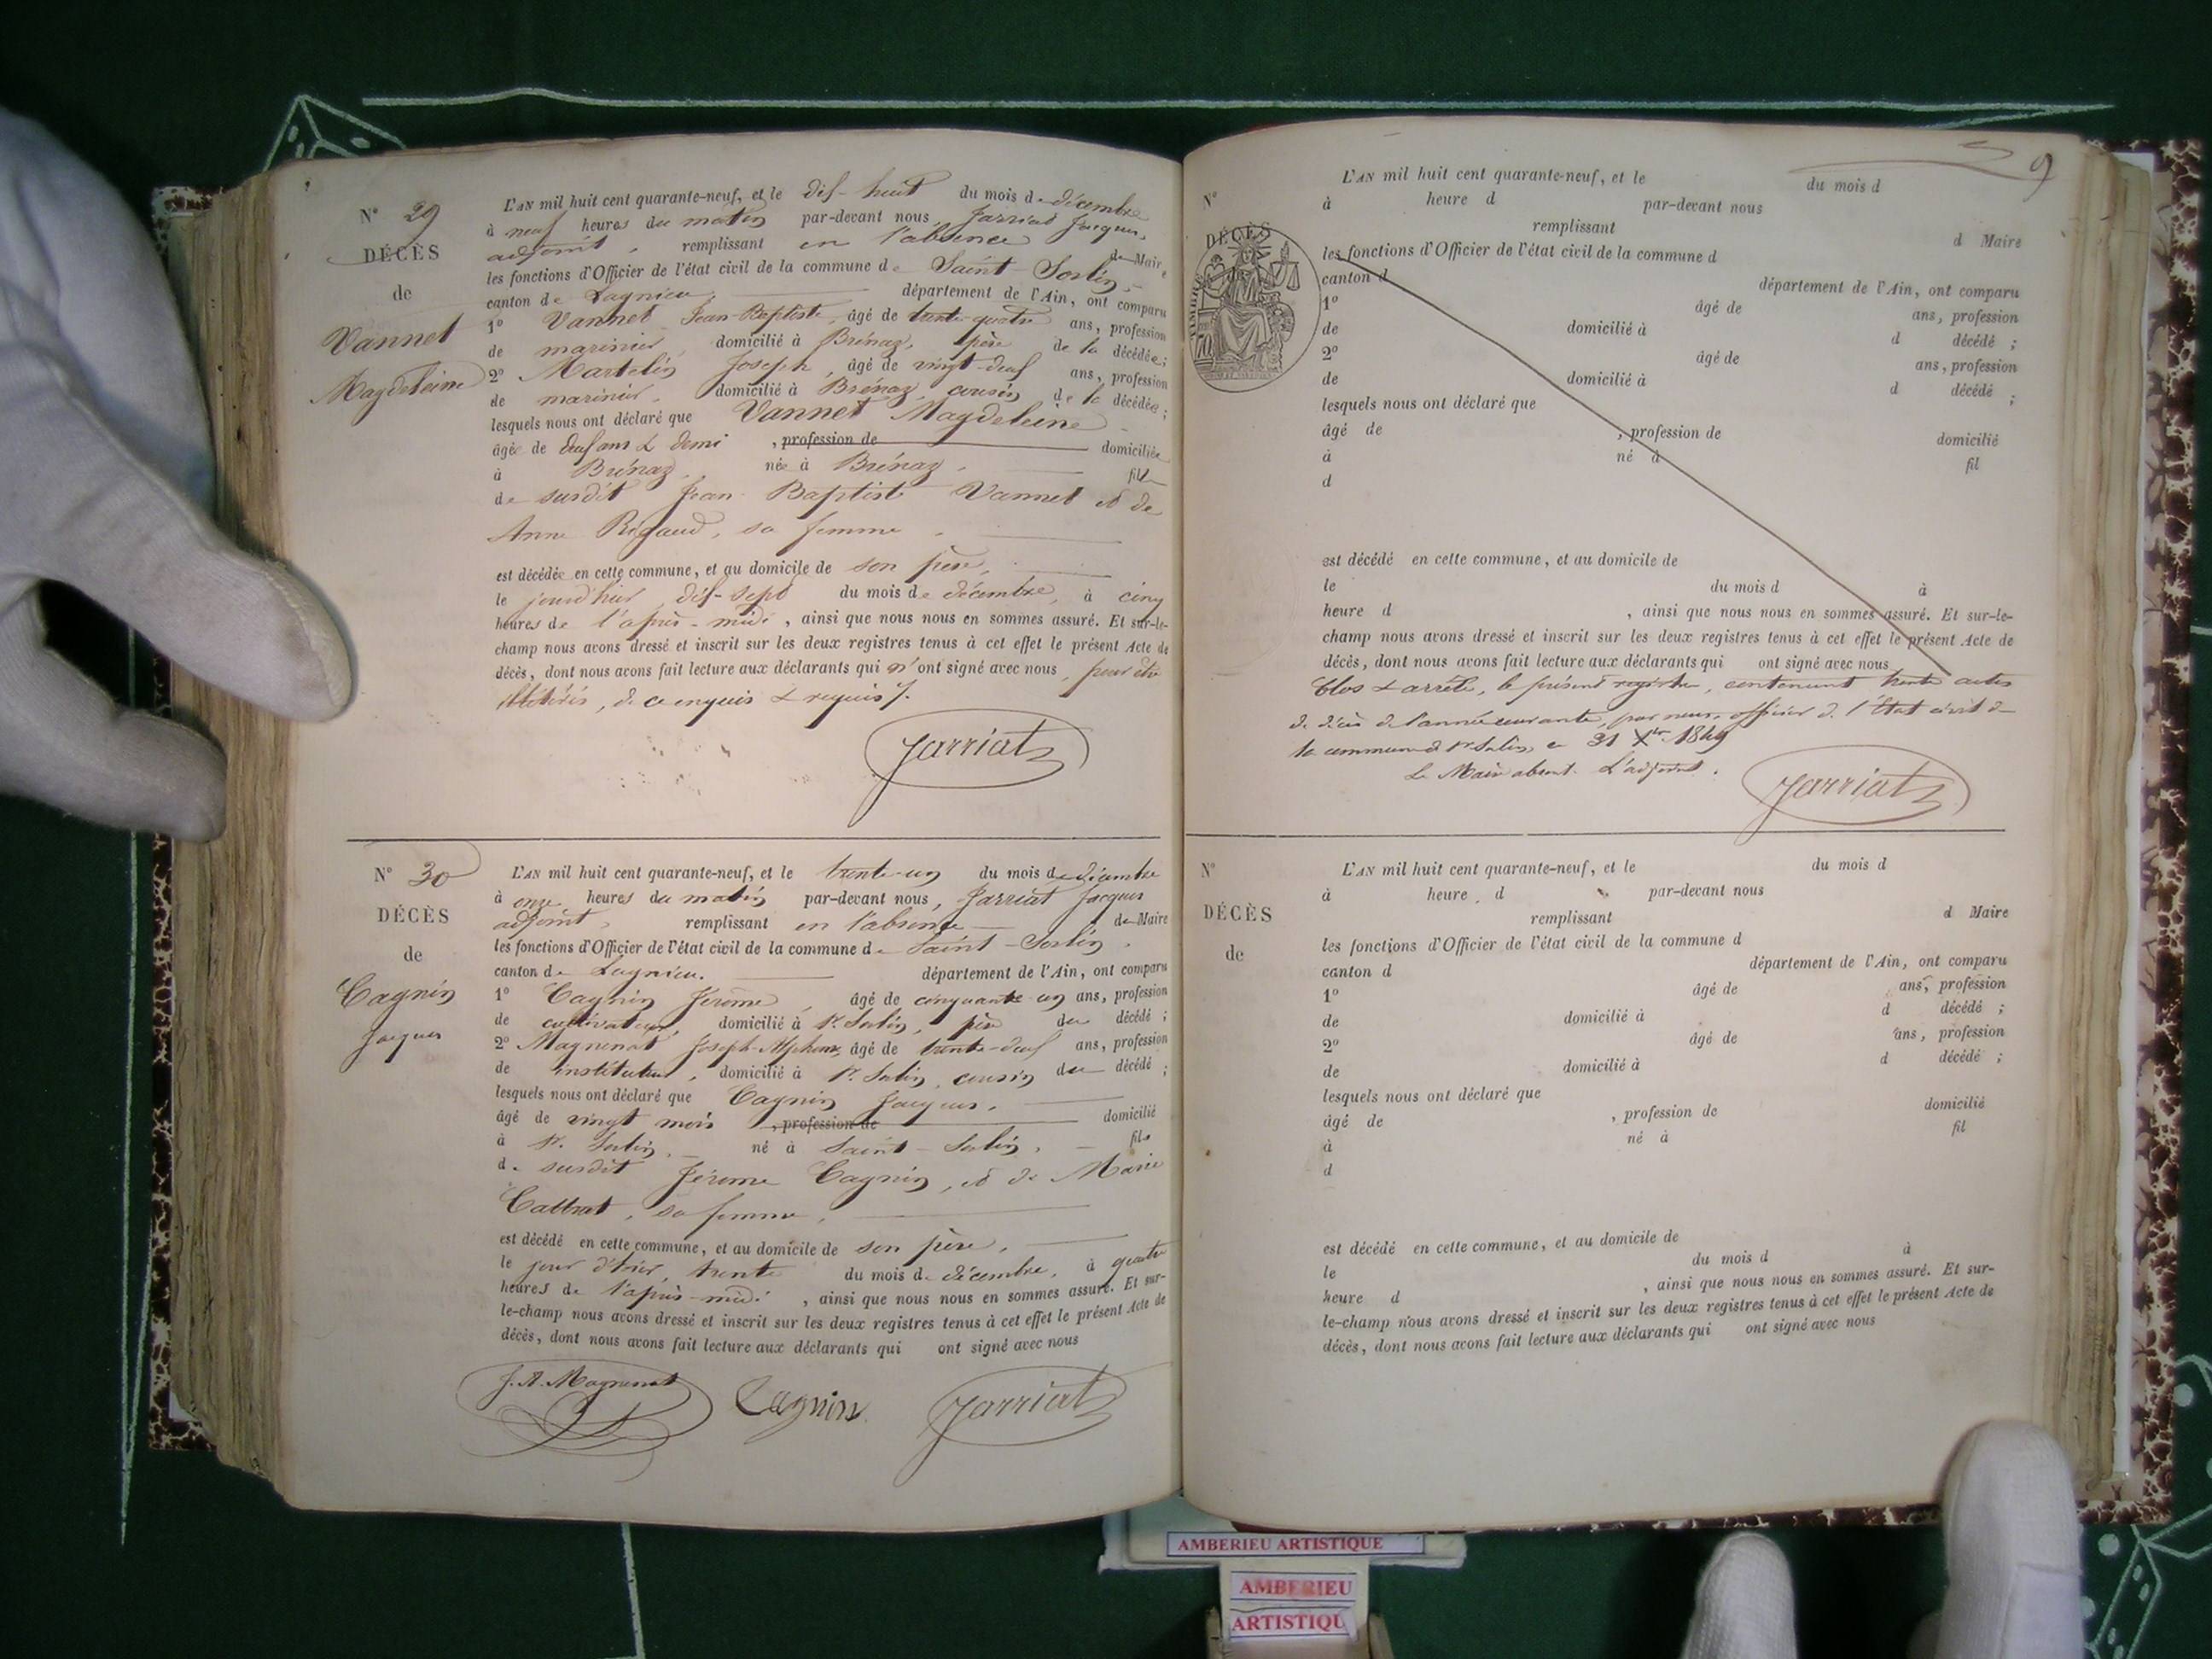 N° 29
DÉCÈS
de
Vannet
Magdeleine
L'AN mil huit cent quarante-neuf, et le dix-huit du mois de décembre
à neuf heures du matin par-devant nous Jarriat Jacques,
adjoint, remplissant en l'absence du Maire
les fonctions d'Officier de l'état civil de la commune de Saint-Sorlin,
canton de Lagnieu, département de l'Ain, ont comparu
1° Vannet Jean-Baptiste, âgé de trente-quatre ans, profession
de marinier, domicilié à Brénaz, père de la décédée;
2° Martelin Joseph, âgé de vingt-deux ans, profession
de marinier, domicilié à Brénaz, cousin de la décédée;
lesquels nous ont déclaré que Vannet Magdeleine
âgée de deux ans & demi, profession de domiciliée
à Brénaz, née à Brénaz, fille
de susdit Jean-Baptiste Vannet et de
Anne Rigaud, sa femme,
est décédée en cette commune, et au domicile de son père,
le jour d'hier, dix-sept du mois de décembre, à cinq
heures de l'après-midi, ainsi que nous nous en sommes assuré. Et sur-le-
champ nous avons dressé et inscrit sur les deux registres tenus à cet effet le présent Acte de
décès, dont nous avons fait lecture aux déclarants qui n'ont signé avec nous, pour être
illétérés, de ce enquis & requis.
Jarriat
N° 30
DÉCÈS
de
Cagnin
Jacques
L'AN mil huit cent quarante-neuf, et le trente-un du mois de décembre
à onze heures du matin par-devant nous, Jarriat Jacques
adjoint, remplissant en l'absence de Maire
les fonctions d'Officier de l'état civil de la commune de Saint-Sorlin,
canton de Lagnieu. département de l'Ain, ont comparu
1° Cagnin Jérome, âgé de cinquante-un ans, profession
de cultivateur, domicilié à St. Sorlin, père du décédé;
2° Magnenat Joseph-Alphonse, âgé de trente-deux ans, profession
de instituteur, domicilié à St. Sorlin, cousin du décédé;
lesquels nous ont déclaré que Cagnin Jacques,
âgé de vingt mois, profession de domicilié
à St. Sorlin, né à Saint-Sorlin, fils
de susdit Jérome Cagnin, et de Marie
sa femme,
est décédé en cette commune, et au domicile de son père,
le jour d'hier, trente du mois de décembre, à quatre
heures de l'après-midi, ainsi que nous nous en sommes assuré. Et sur-
le-champ nous avons dressé et inscrit sur les deux registres tenus à cet effet le présent Acte de
décès, dont nous avons fait lecture aux déclarants qui ont signé avec nous
J. A. Magnenat Cagnin Jarriat
9
N°
DÉCÈS
TIMBRE
L'AN mil huit cent quarante-neuf, et le du mois d
à heure d par-devant nous
remplissant d Maire
les fonctions d'Officier de l'état civil de la commune d
canton d département de l'Ain, ont comparu
1° âgé de ans, profession
de domicilié à d décédé ;
2° âgé de ans, profession
de domicilié à d décédé ;
lesquels nous ont déclaré que
âgé de , profession de domicilié
à né à fil
d
est décédé en cette commune, et au domicile de
le du mois d à
heure d , ainsi que nous nous en sommes assuré. Et sur-le-
champ nous avons dressé et inscrit sur les deux registres tenus à cet effet le présent Acte de
décès, dont nous avons fait lecture aux déclarants qui ont signé avec nous
Clos & arrêté, le présent registre, contenant trente actes
de décès de l'année courante, par nous, officier de l'État civil de
la commune de St Sorlin, ce 31 Xbre 1849
Le Maire absent. L'adjoint.
Jarriat
N°
DÉCÈS
de
L'AN mil huit cent quarante-neuf, et le du mois d
à heure d par-devant nous
remplissant d Maire
les fonctions d'Officier de l'état civil de la commune d
canton d département de l'Ain, ont comparu
1° âgé de ans, profession
de domicilié à d décédé ;
2° âgé de ans, profession
de domicilié à d décédé ;
lesquels nous ont déclaré que
âgé de , profession de domicilié
à né à fil
d
est décédé en cette commune, et au domicile de
le du mois d à
heure d , ainsi que nous nous en sommes assuré. Et sur-
le-champ nous avons dressé et inscrit sur les deux registres tenus à cet effet le présent Acte de
décès, dont nous avons fait lecture aux déclarants qui ont signé avec nous
AMBERIEU ARTISTIQUE
AMBERIEU
ARTISTIQU